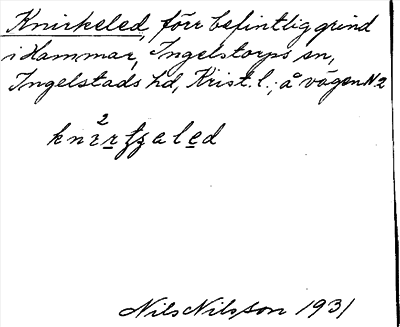 Knirkeled, förr befintlig grind
i Hammar, Ingelstorps sn,
Ingelstads hd, Krist. l.; å vägen N 2
2
Nils Nilsson 1931